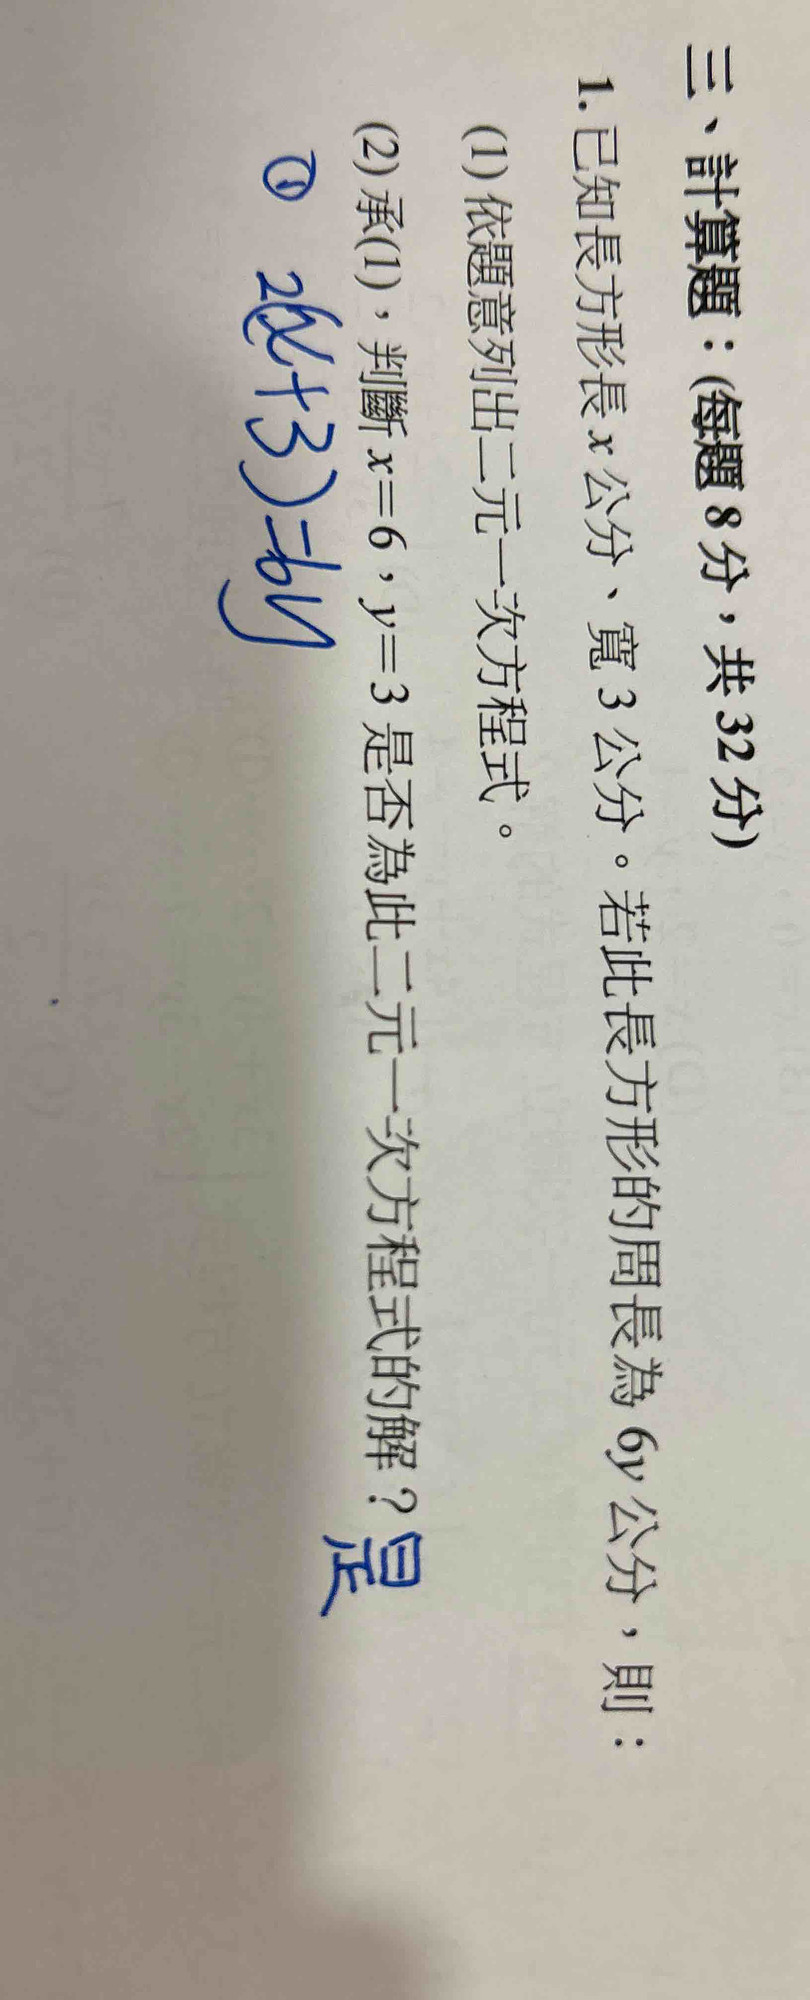 三、計算題：(每題 8 分，共 32 分)
1. 已知長方形長 x 公分、寬 3 公分。若此長方形的周長為 6y 公分，則：
(1) 依題意列出二元一次方程式。
(2) 承(1)，判斷 x=6，y=3 是否為此二元一次方程式的解？是
① 2(x+3)=6y